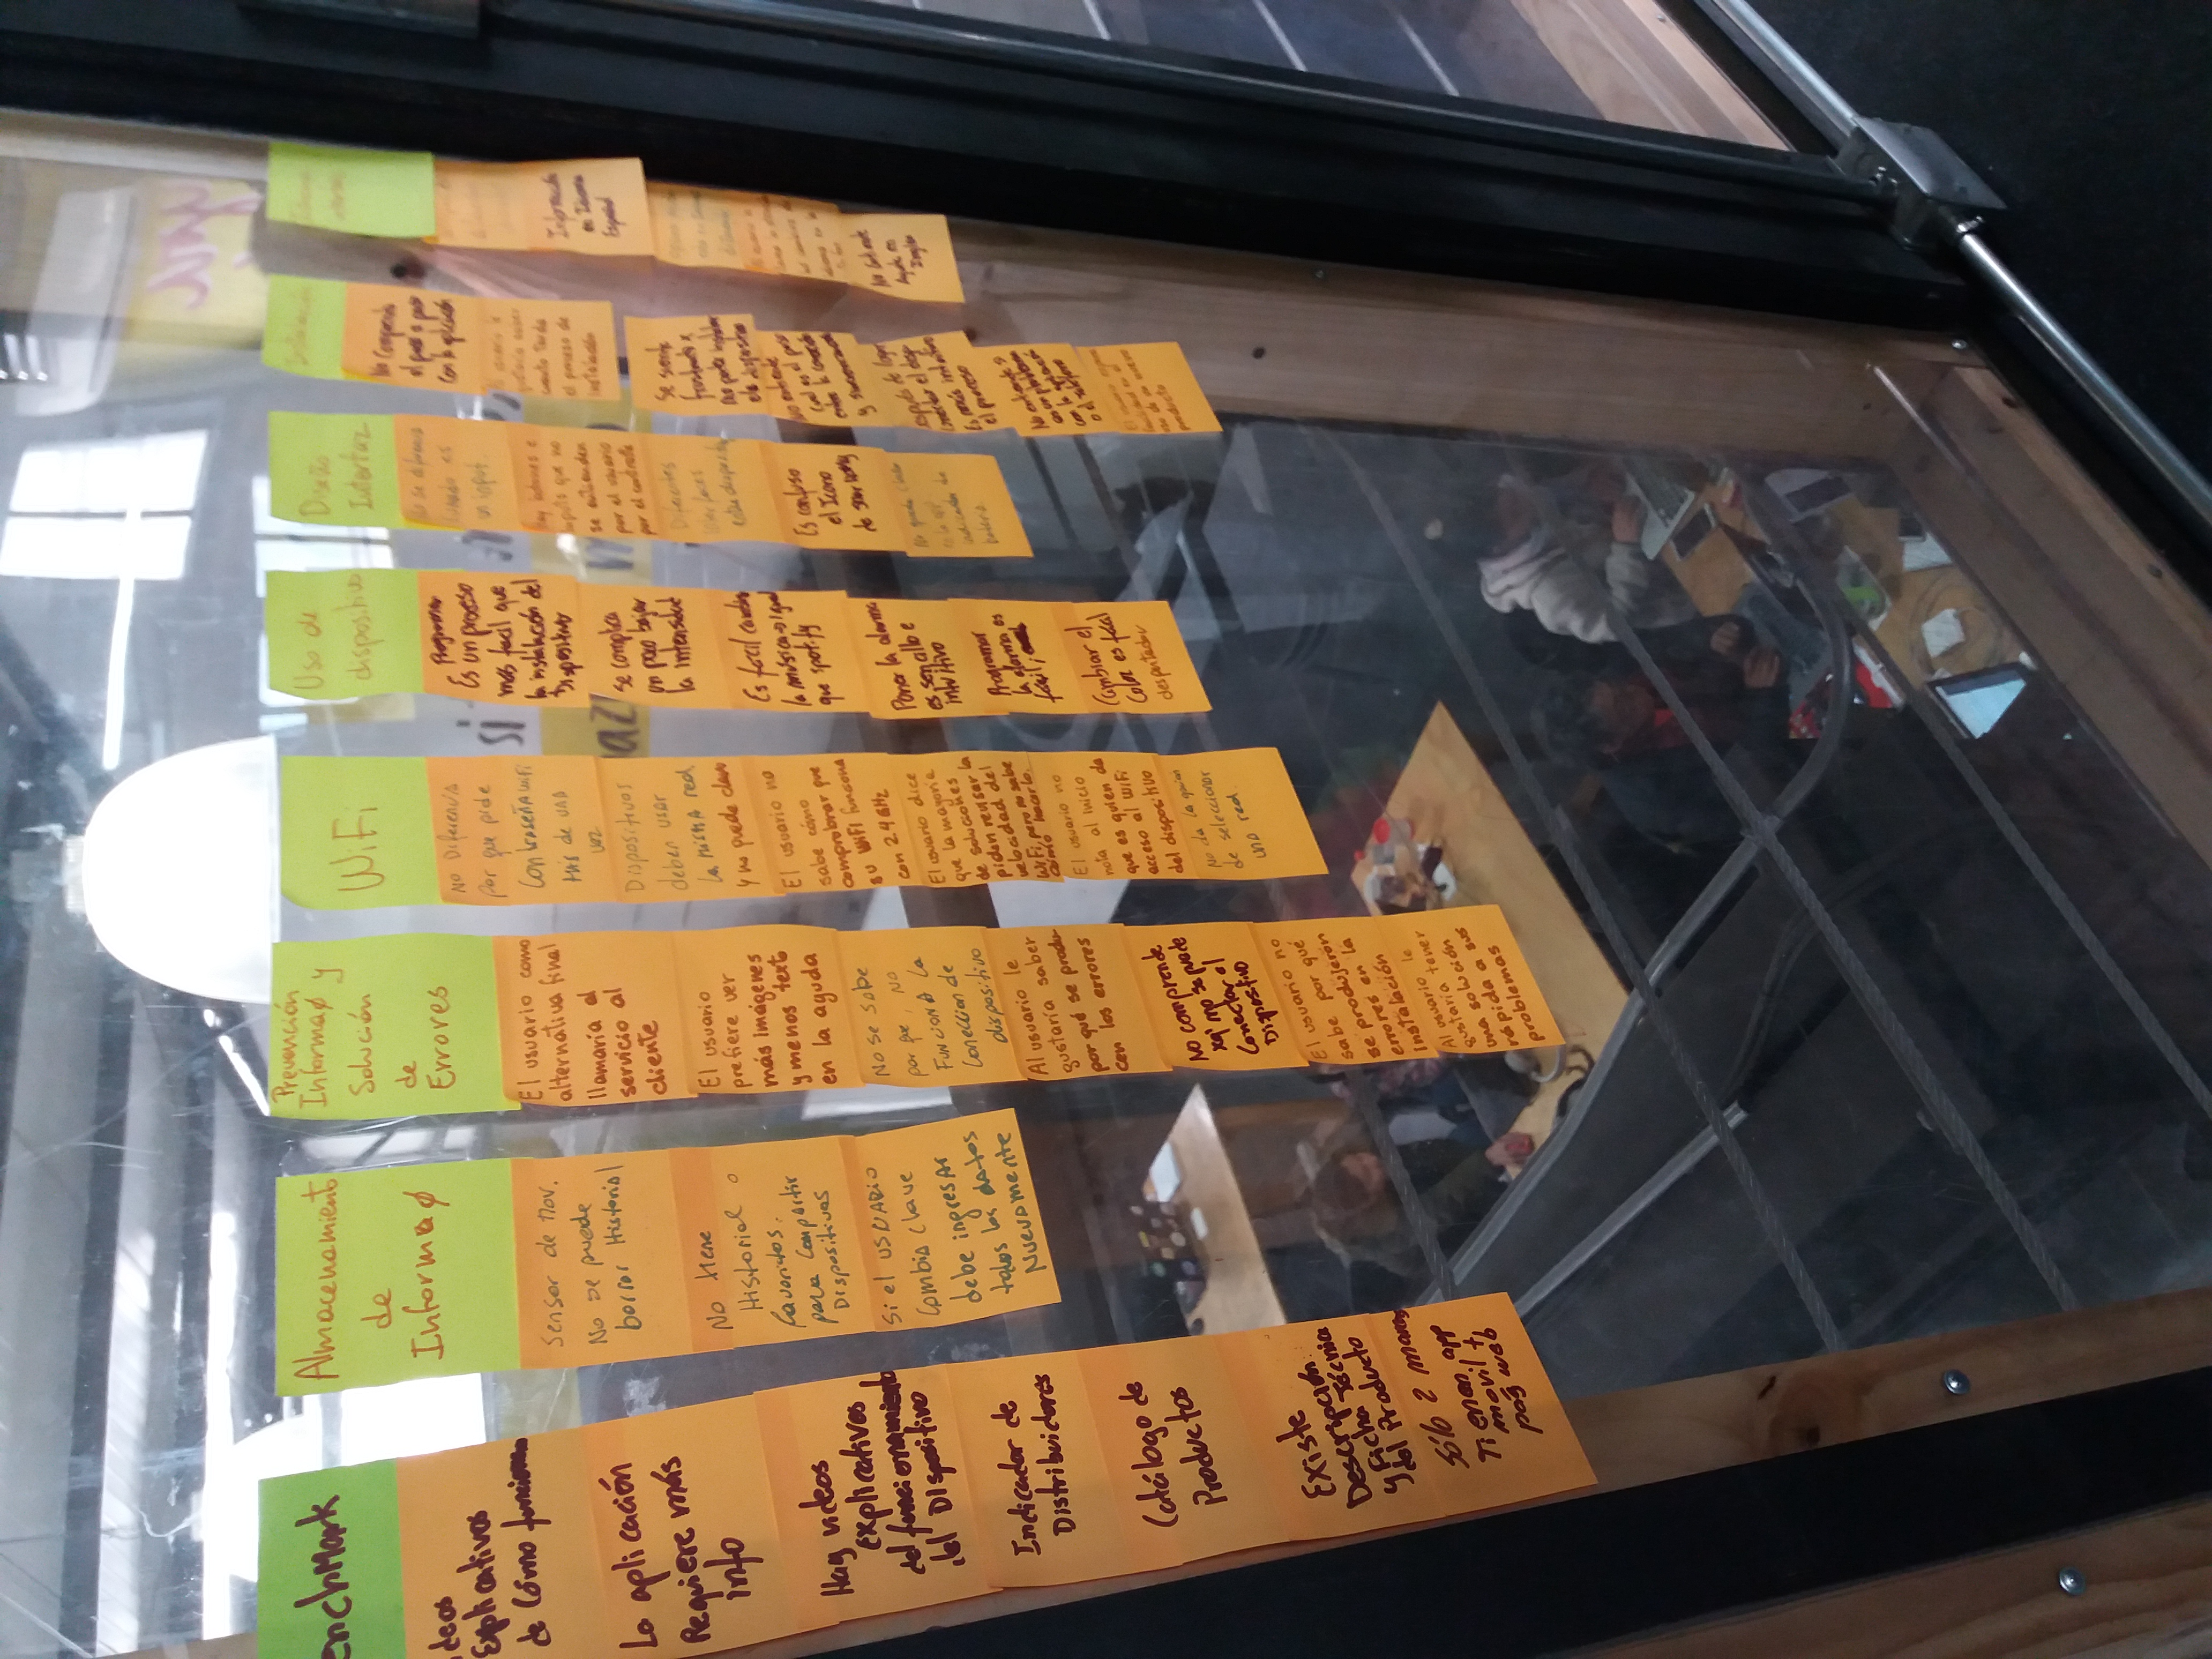 enchMark
ideos
Explicativos
de Cómo funcionan
La aplicación
Requiere más
info
Hay videos
Explicativos
del funcionamiento
del Dispositivo
Indicador de
Distribuidores
Catálogo de
Productos
Existe
Descripción
y Ficha Técnica
del Producto
Sólo 2 marcas
Tienen app
movil +
pag web
Almacenamiento
de
Informaø
Sensor de mov.
No se puede
borrar Historial
No tiene
Historial o
favoritos.
para compartir
Dispositivos
Si el USUARIO
Cambia clave
debe ingresar
todos los datos
Nuevamente
Prevención
Informaø y
Solución
de
Errores
El usuario como
alternativa final
llamaría al
servicio al
cliente
El usuario
prefiere ver
más imágenes
y menos text
en la aguda
No se sabe
por que, no
FUNCIONA la
Coneccion de
dispositivo
Al usuario le
gustaría saber
por qué se produ-
cen los errores
No comprende
xq' no se puede
Conectar el
Dispositivo
El usuario no
sabe por qué
se produjerón
errores en la
instalación
Al usuario le
gustaría tener
una solución
rápida a sus
problemas
WiFi
No Diferencia
por que pide
Contraseña WiFi
más de una
vez
Dispositivos
deben usar
la misma red
y no puede claro
El usuario no
sabe cómo
comprobrar que
su WiFi funciona
con 2.4 GHz
El usuario dice
que la mayoría
de soluciones
piden revisar la
velocidad del
WiFi, pero no sabe
cómo hacerlo.
El usuario no
nota al inicio
que es quien da
acceso al WiFi
del dispositivo
No da la opción
de seleccionar
una red.
Uso de
dispositivo
Programar
Es un proceso
más facil que
la instalación del
Dispositivo
se complica
un poco bajar
la intensidad
Es fácil cambiar
la música → igual
que spotify
Poner la alarma
es sencillo e
intuitivo
Programar
la alarma es
fácil,
Cambiar el
Color es fácil
despertador
Diseño
Interfaz
No se diferencia
cuando es
un input
Hay botones e
inputs que no
se entienden
por el usuario
por el contraste
Diferentes
interfaces
Es confuso
el Icono
de Star Way
No queda claro
en la app
indicador de
batería
Instalación
No Comprende
el paso a paso
con la aplicación
Al usuario le
gustaría saber
cuanto tarda
el proceso de
instalación
Se siente
frustrado x
no poder instalar
el dispositivo
No entiende
cual es el paso
entre la conexión
y sincronización
Después de lograr
conectar el disp.
Es más intuitivo
el proceso
No entiende si
es un problema
con la aplicación
o el Teléfono
El usuario espera
facilidad en el
uso de un nuevo
producto
Información
en Idioma
Español
No entiende
Ayuda en
Ingles